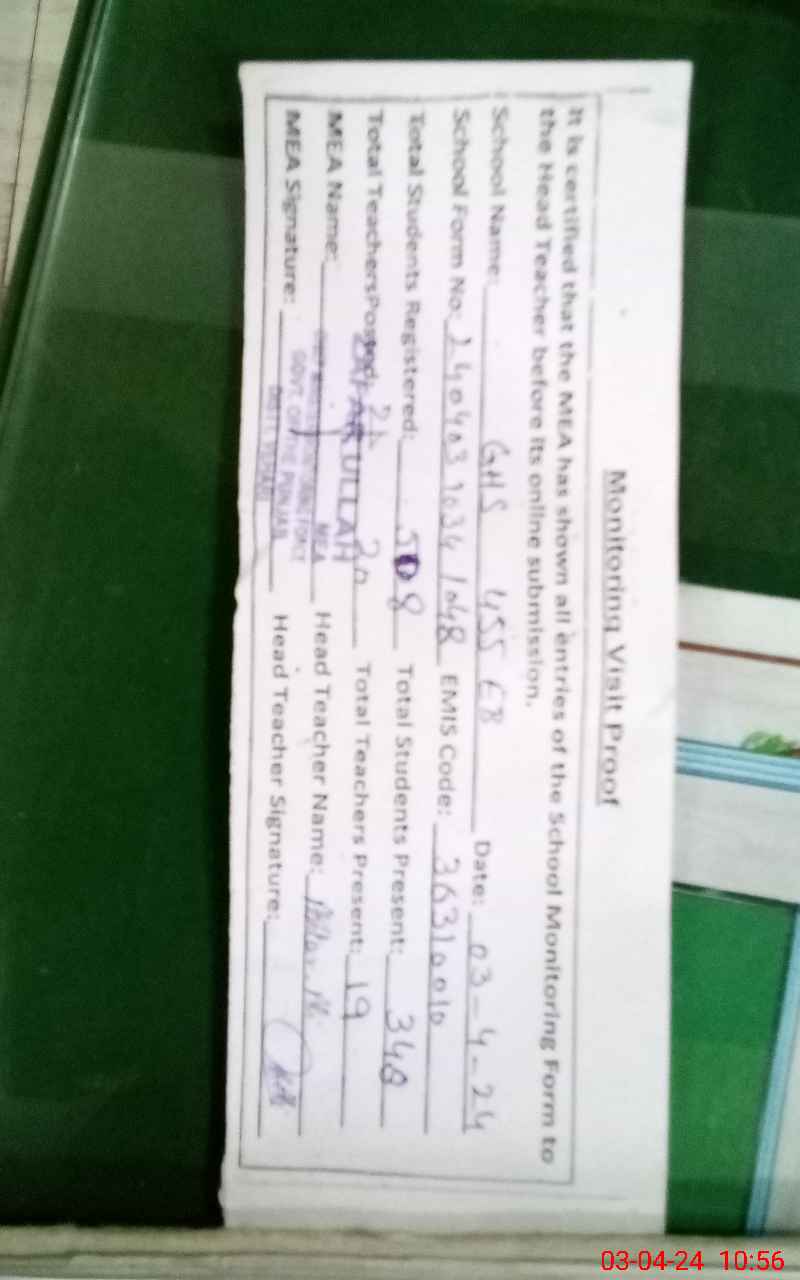 Monitoring Visit Proof
It is certified that the MEA has shown all entries of the School Monitoring Form to
the Head Teacher before its online submission.
School Name: GHS 455 EB Date: 03-4-24
School Form No: 24040370341048 EMIS Code: 36310010
Total Students Registered: 508 Total Students Present: 348
Total Teachers Posted: 21 20 Total Teachers Present: 19
ZAFAR ULLAH
MEA Name: MEA Head Teacher Name:
GOVT. OF THE PUNJAB
MEA Signature: Head Teacher Signature:
DISTT. VEHARI
03-04-24 10:56